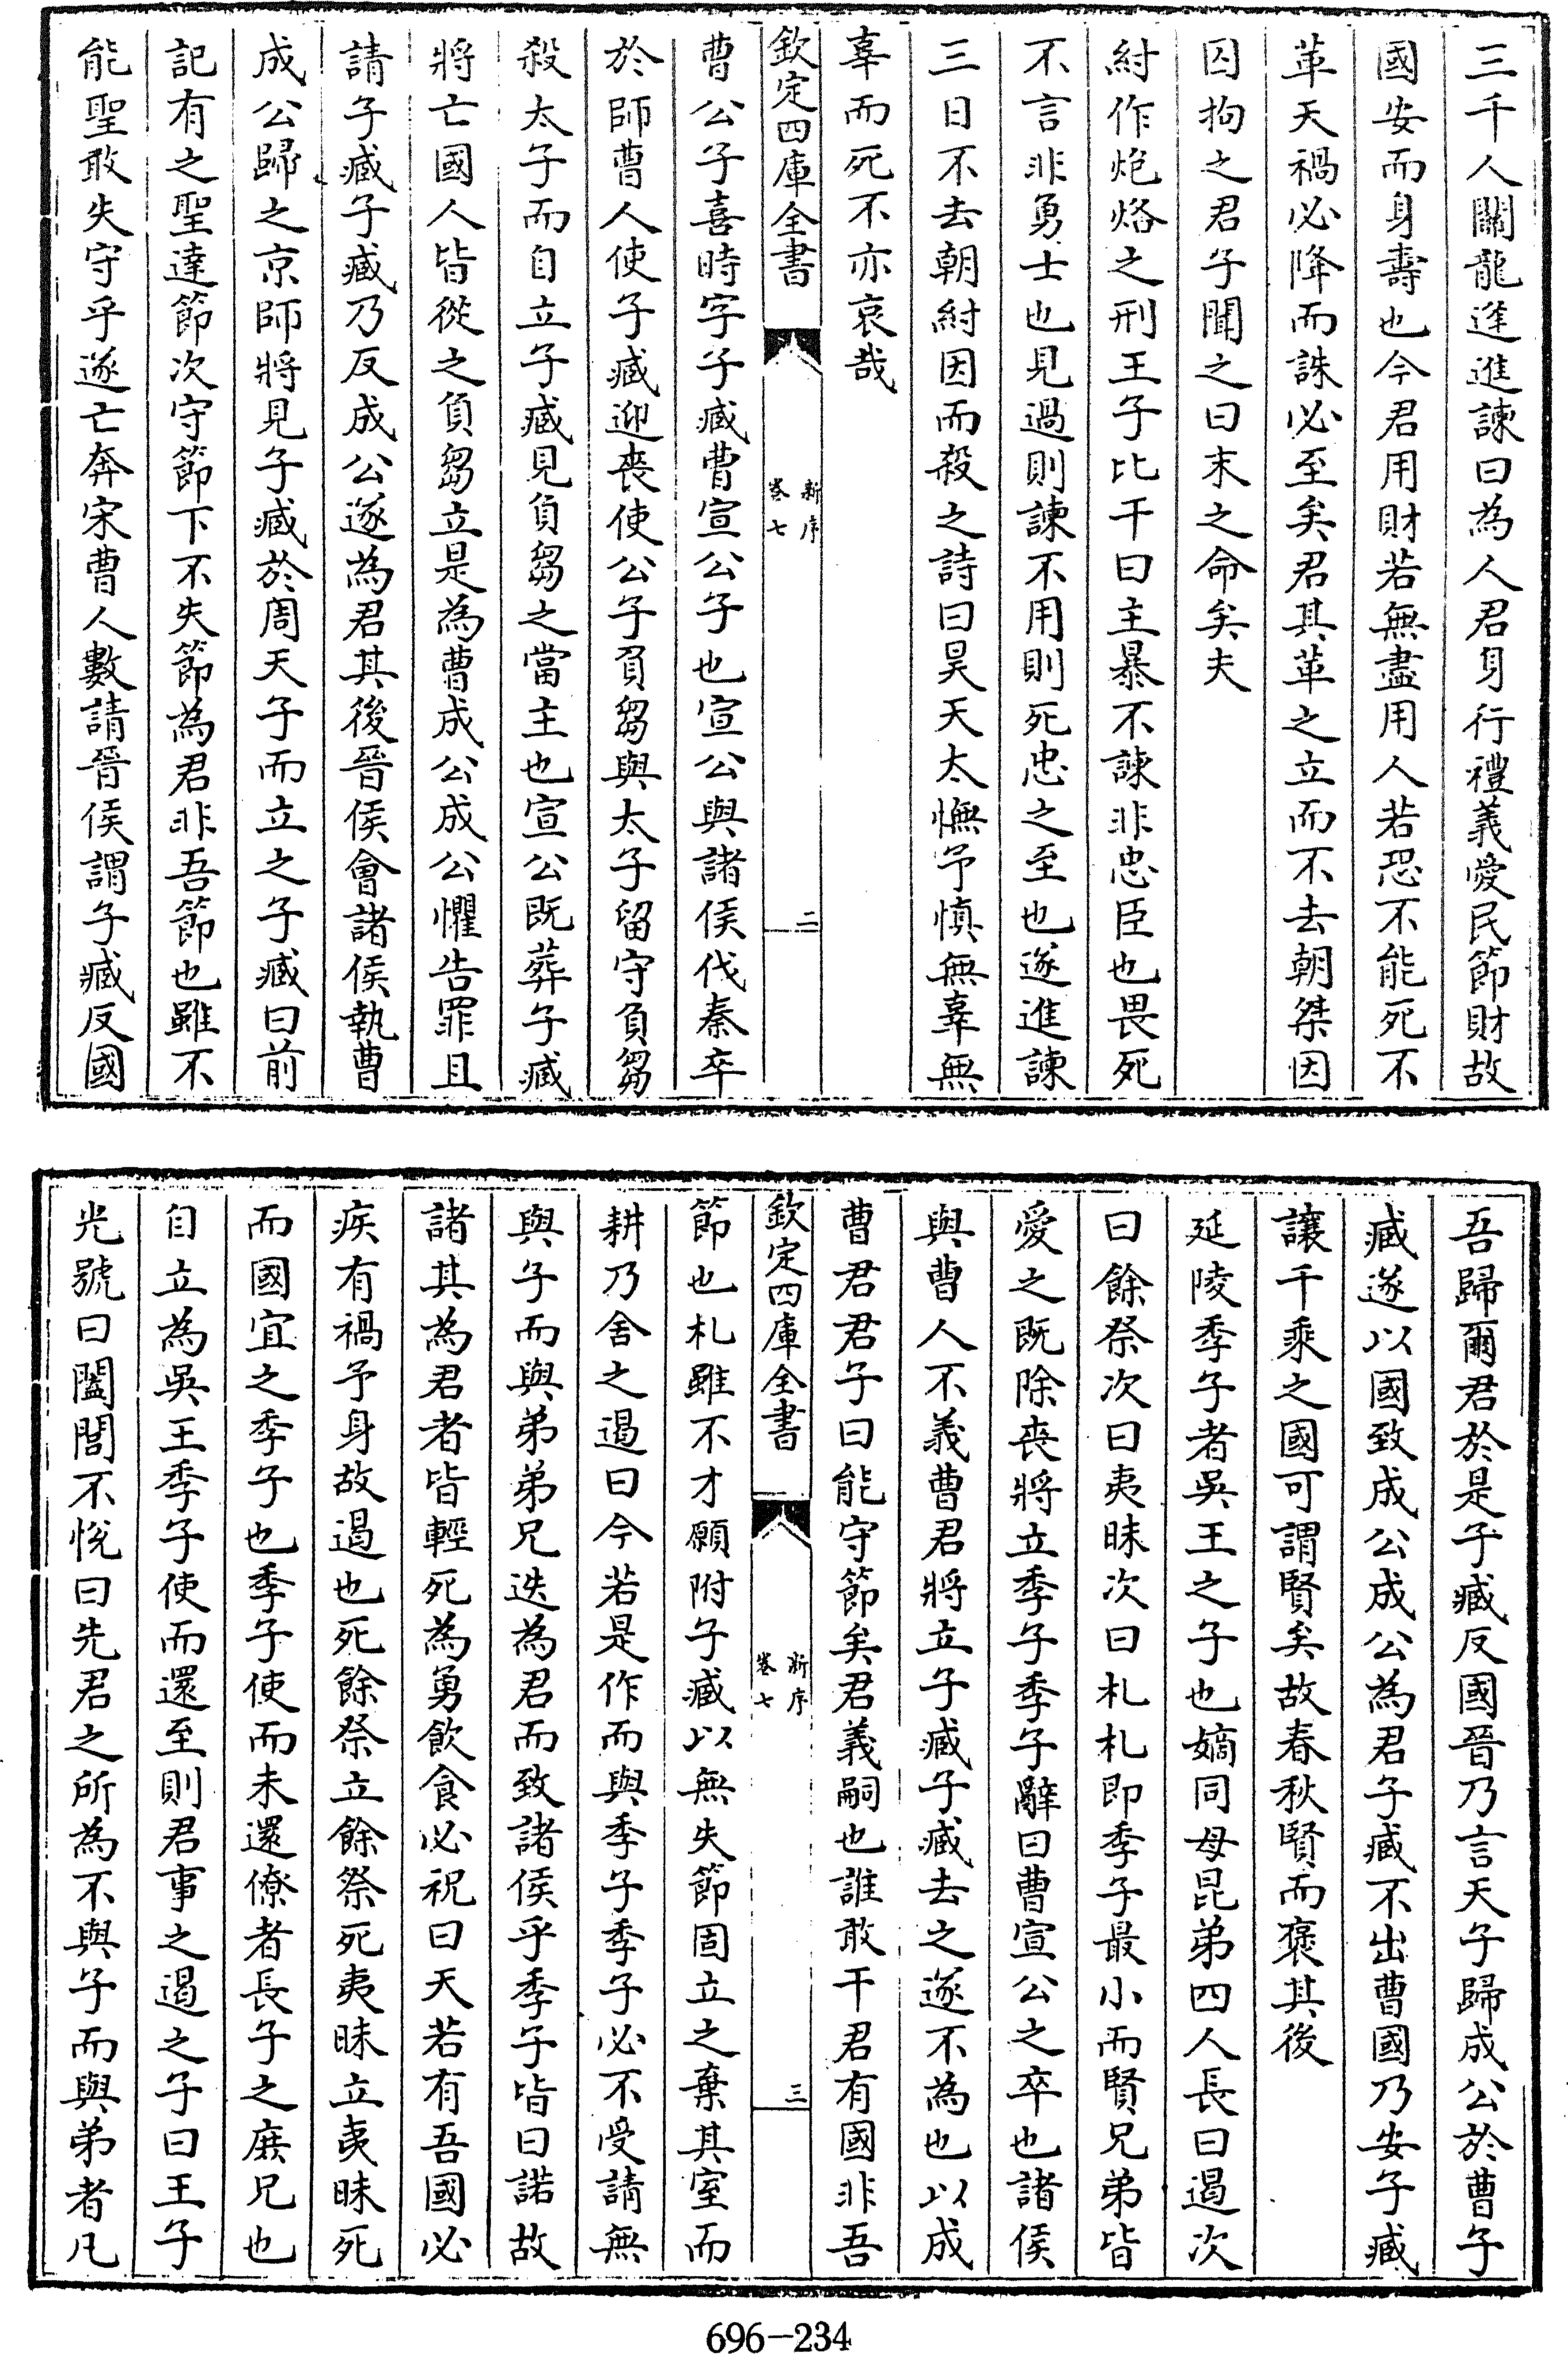 三千人關龍逄進諫曰為人君身行禮義愛民節財故
國安而身壽也今君用財若無盡用人若恐不能死不
革天禍必降而誅必至矣君其革之立而不去朝桀因
囚拘之君子聞之曰末之命矣夫
紂作炮烙之刑王子比干曰主暴不諫非忠臣也畏死
不言非勇士也見過則諫不用則死忠之至也遂進諫
三日不去朝紂因而殺之詩曰昊天太憮予慎無辜無
辜而死不亦哀哉
欽定四庫全書
新序
卷七
二
曹公子喜時字子臧曹宣公子也宣公與諸侯伐秦卒
於師曹人使子臧迎喪使公子負芻與太子留守負芻
殺太子而自立子臧見負芻之當主也宣公既葬子臧
將亡國人皆從之負芻立是為曹成公成公懼告罪且
請子臧子臧乃反成公遂為君其後晉侯會諸侯執曹
成公歸之京師將見子臧於周天子而立之子臧曰前
記有之聖達節次守節下不失節為君非吾節也雖不
能聖敢失守乎遂亡奔宋曹人數請晉侯謂子臧反國
吾歸爾君於是子臧反國晉乃言天子歸成公於曹子
臧遂以國致成公成公為君子臧不出曹國乃安子臧
讓千乘之國可謂賢矣故春秋賢而褒其後
延陵季子者吳王之子也嫡同母昆弟四人長曰遏次
曰餘祭次曰夷昧次曰札札即季子最小而賢兄弟皆
愛之既除喪將立季子季子辭曰曹宣公之卒也諸侯
與曹人不義曹君將立子臧子臧去之遂不為也以成
曹君君子曰能守節矣君義嗣也誰敢干君有國非吾
欽定四庫全書
新序
卷七
三
節也札雖不才願附子臧以無失節固立之棄其室而
耕乃舍之遏曰今若是作而與季子季子必不受請無
與子而與弟弟兄迭為君而致諸侯乎季子皆曰諾故
諸其為君者皆輕死為勇飲食必祝曰天若有吾國必
疾有禍予身故遏也死餘祭立餘祭死夷昧立夷昧死
而國宜之季子也季子使而未還僚者長子之庶兄也
自立為吳王季子使而還至則君事之遏之子曰王子
光號曰闔閭不悅曰先君之所為不與子而與弟者凡
696-234